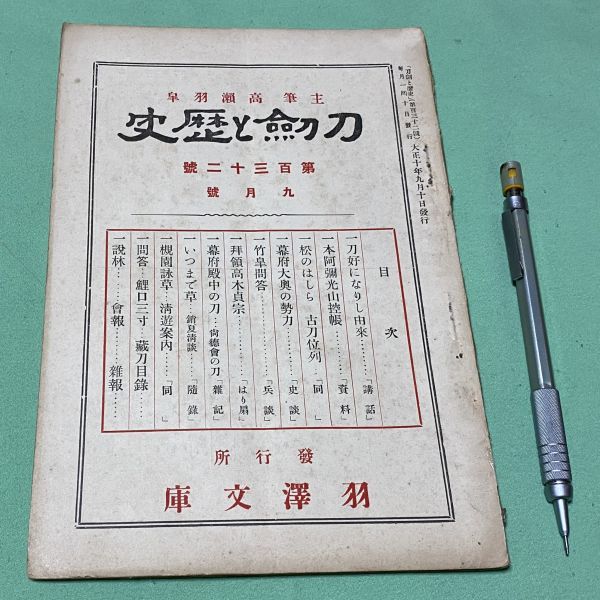 「刀劍と歷史」第百三十二號)大正十年九月十日發行
每月一回十日發行
主筆高瀨羽皐
刀劍と歷史
第百三十二號
九月號
目次
一刀好になりし由來……「講話」
一本阿彌光山控帳……「資料」
一松のはしら 古刀位列「同」
一幕府大奧の勢力……「史談」
一竹皐問答……「兵談」
一拜領高木貞宗……「はり扇」
一幕府殿中の刀…尙德會の刀「雜記」
一いつまで草…銷夏淸談…「隨錄」
一槻園詠草…淸遊案內…「同」
一問答…鯉口三寸…藏刀目錄…
一說林……會報……雜報……
發行所
羽澤文庫